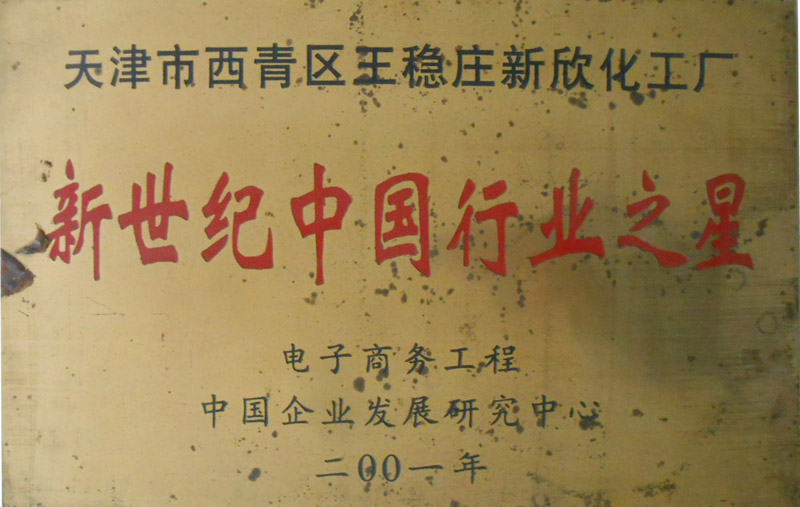 天津市西青区王稳庄新欣化工厂
新世纪中国行业之星
电子商务工程
中国企业发展研究中心
二00一年